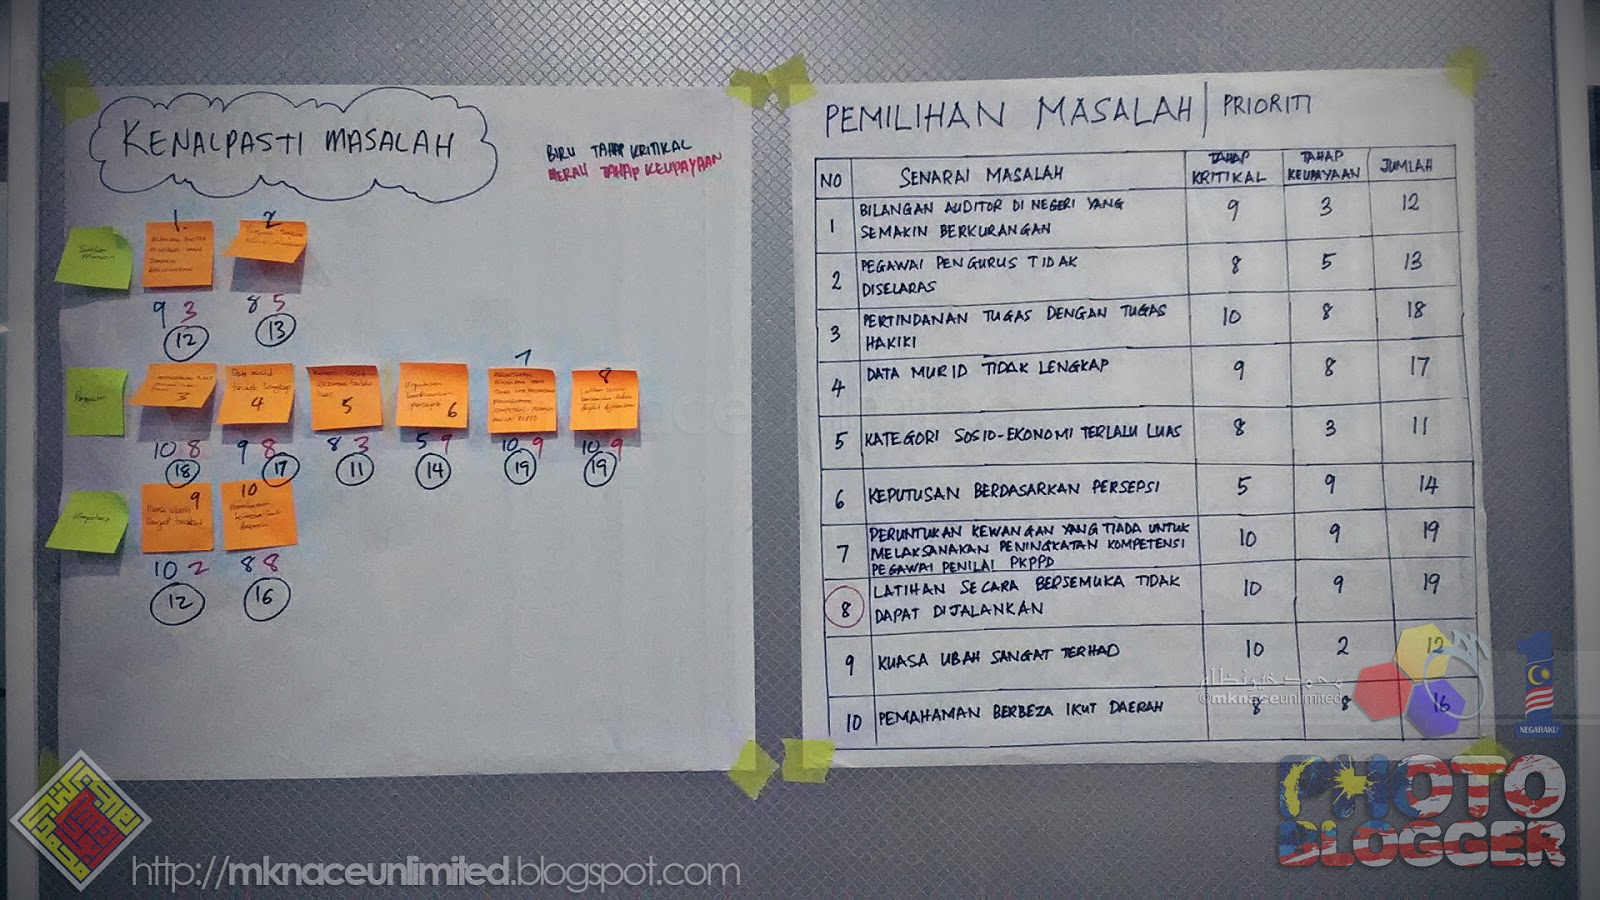 KENALPASTI MASALAH
BIRU TAHAP KRITIKAL
MERAH TAHAP KEUPAYAAN
1. 2
9 3 8 5
12 13
7
3 4 5 6 8
10 8 9 8 8 3 5 9 10 9 10 9
18 17 11 14 19 19
9 10
10 2 8 8
12 16
PEMILIHAN MASALAH | PRIORITI
NO SENARAI MASALAH TAHAP KRITIKAL TAHAP KEUPAYAAN JUMLAH
1 BILANGAN AUDITOR DI NEGERI YANG 9 3 12
SEMAKIN BERKURANGAN
2 PEGAWAI PENGURUS TIDAK 8 5 13
DISELARAS
3 PERTINDANAN TUGAS DENGAN TUGAS 10 8 18
HAKIKI
4 DATA MURID TIDAK LENGKAP 9 8 17
5 KATEGORI SOSIO-EKONOMI TERLALU LUAS 8 3 11
6 KEPUTUSAN BERDASARKAN PERSEPSI 5 9 14
7 PERUNTUKAN KEWANGAN YANG TIADA UNTUK 10 9 19
MELAKSANAKAN PENINGKATAN KOMPETENSI
PEGAWAI PENILAI PKPPD
8 LATIHAN SECARA BERSEMUKA TIDAK 10 9 19
DAPAT DIJALANKAN
9 KUASA UBAH SANGAT TERHAD 10 2 12
10 PEMAHAMAN BERBEZA IKUT DAERAH 8 8 16
©mknaceunlimited
1
NEGARAKU
PHOTO
BLOGGER
http://mknaceunlimited.blogspot.com